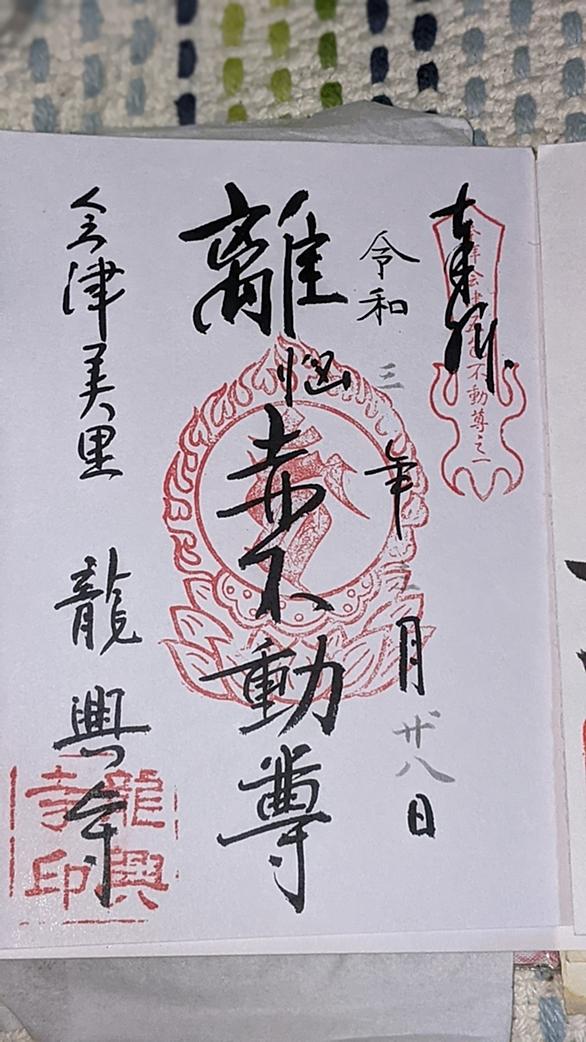 奉拝
不動尊之一
令和三年三月廿八日
離悩
赤不動尊
会津美里 龍興寺
龍興
寺印